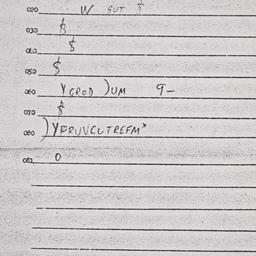 020 W BUT $
030 $
040 $
050 $
060 YGROD )UM 9-
070 $
080 )YPRUVCUTREFM*
081 0